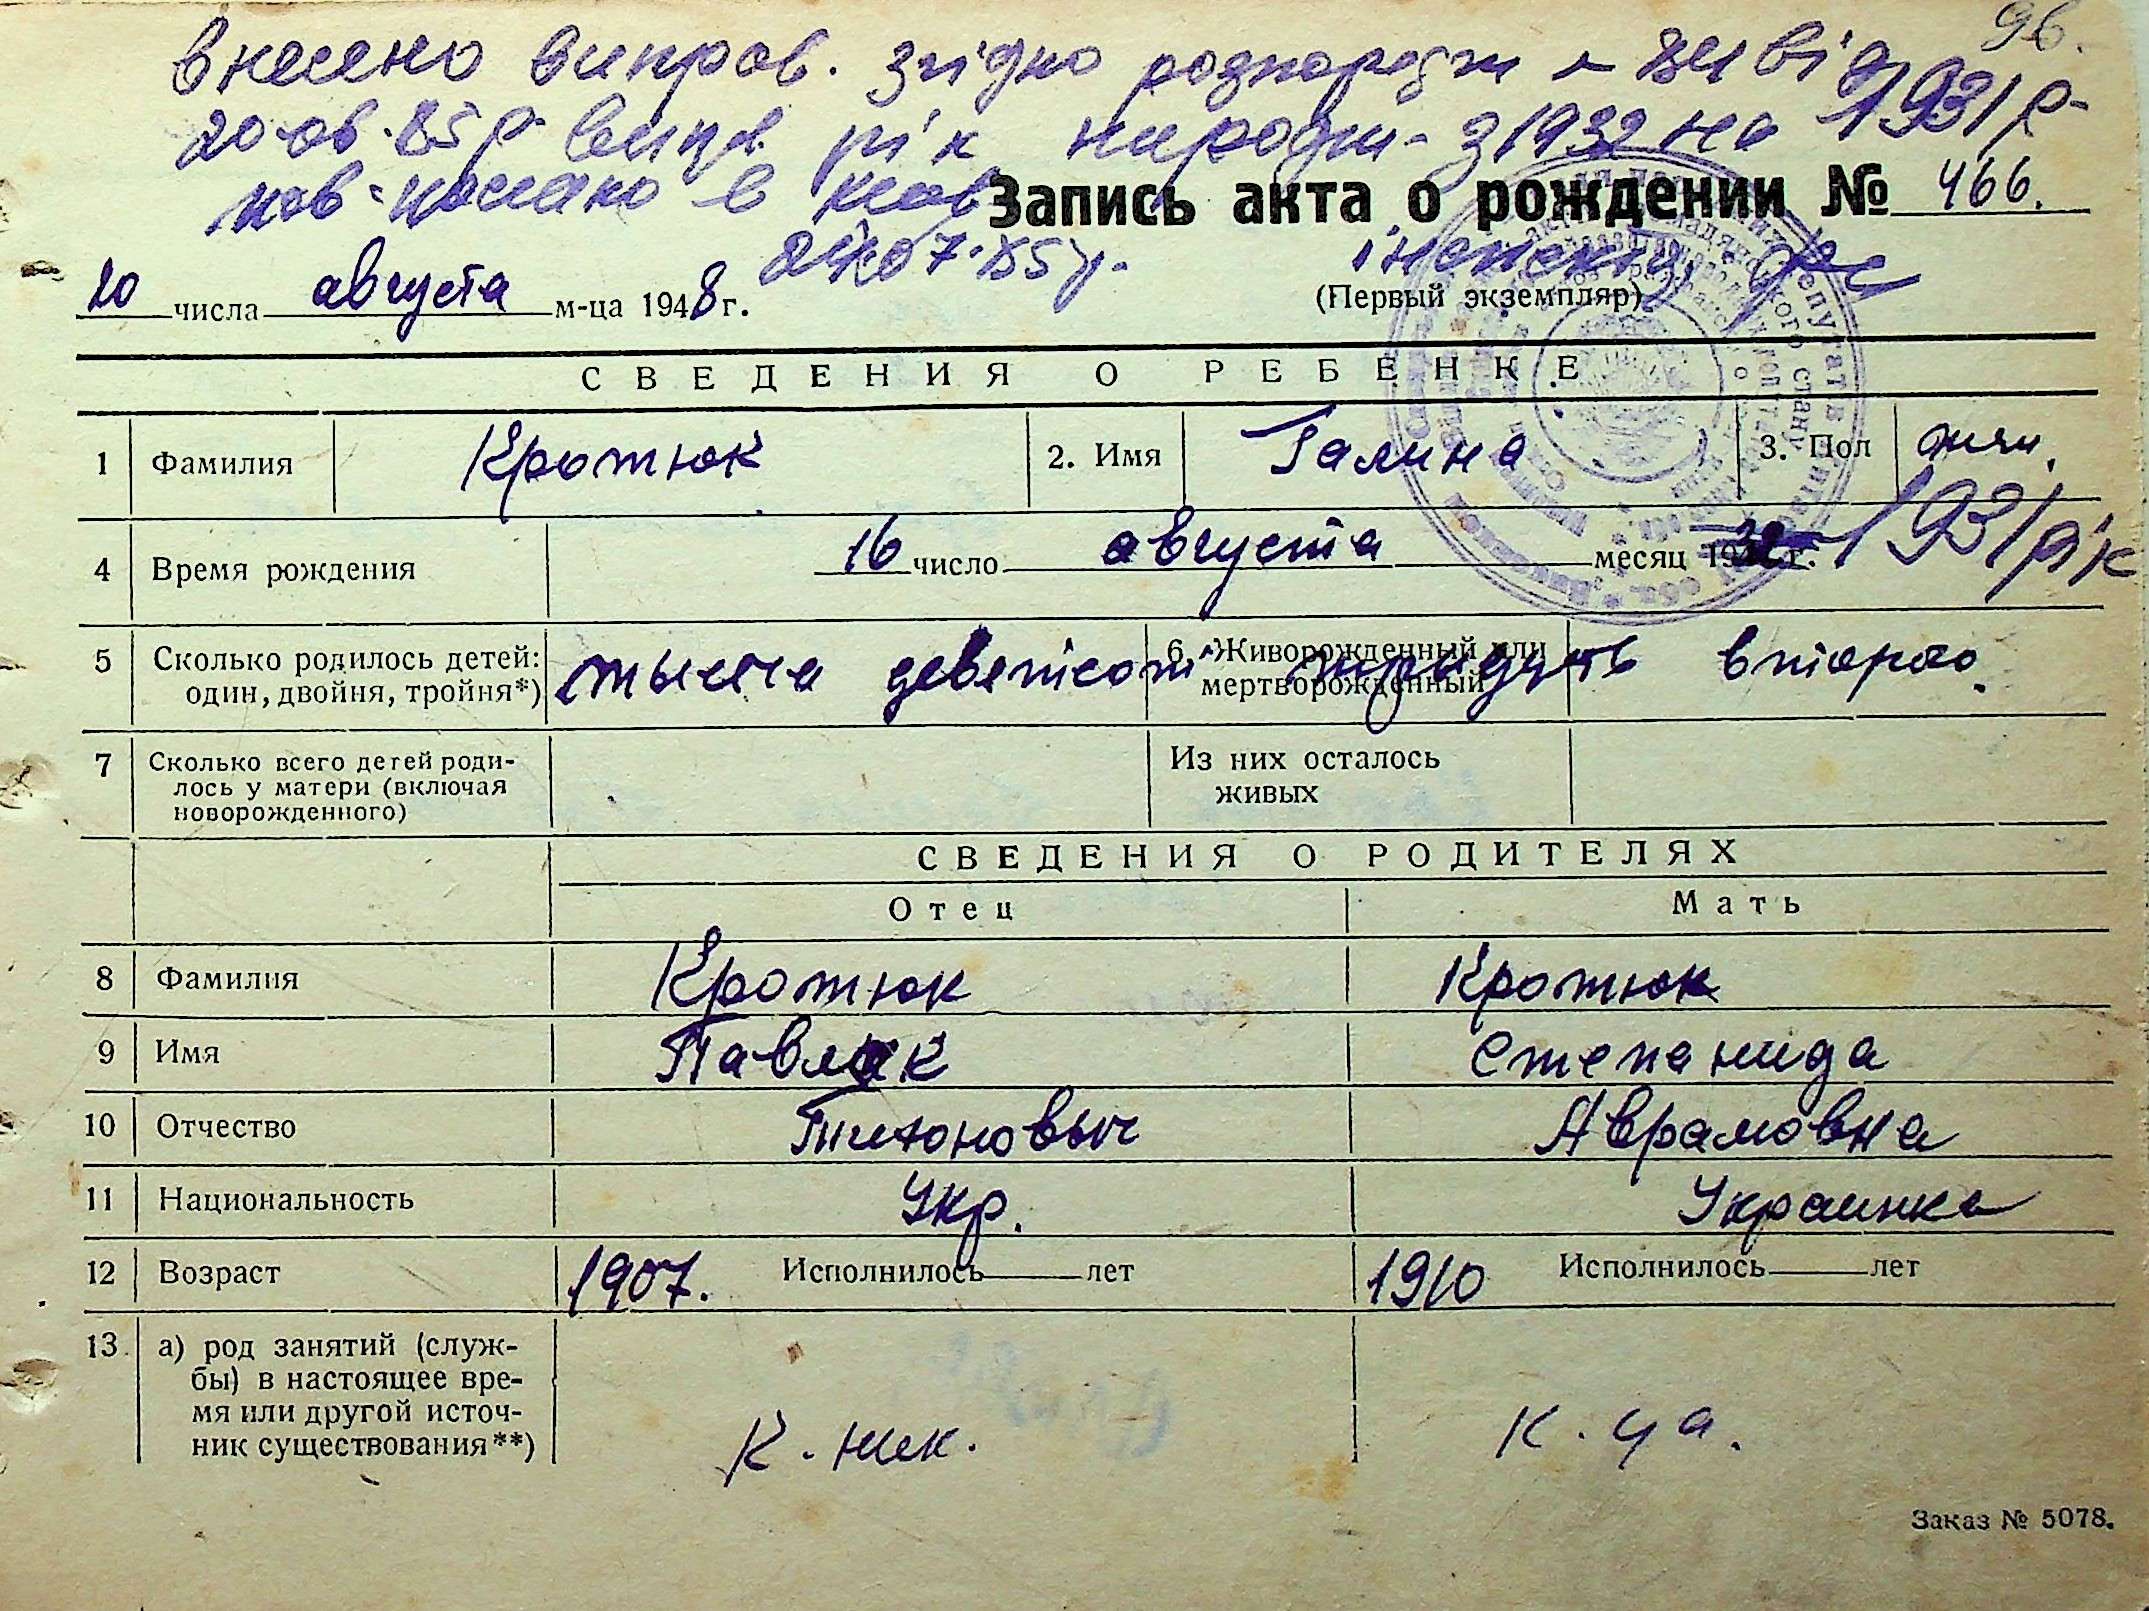 96.
внесено виправ. згідно розпорядж від
20.06.85р. випр. рік народж- з 1932 на 1931 р.
пов-
Запись акта о рождении № 466.
20 числа августа м-ца 1948 г.
(Первый экземпляр)
СВЕДЕНИЯ О РЕБЕНКЕ
1 Фамилия Кротюк 2. Имя Галина 3. Пол жен.
4 Время рождения 16 число августа месяц 1932 г. 1931 рік
5 Сколько родилось детей: один, двойня, тройня*) 6. Живорожденный или мертворожденный
тысяча девятсот тридцять второго.
7 Сколько всего детей роди-
лось у матери (включая
новорожденного)
Из них осталось
живых
СВЕДЕНИЯ О РОДИТЕЛЯХ
Отец Мать
8 Фамилия Кротюк Кротюк
9 Имя Павлак Степанида
10 Отчество Тихоновыч Аврамовна
11 Национальность Укр. Украинка
12 Возраст 1907. Исполнилось лет 1910 Исполнилось лет
13. а) род занятий (служ-
бы) в настоящее вре-
мя или другой источ-
ник существования**)
К. ник. К. ца.
Заказ № 5078.